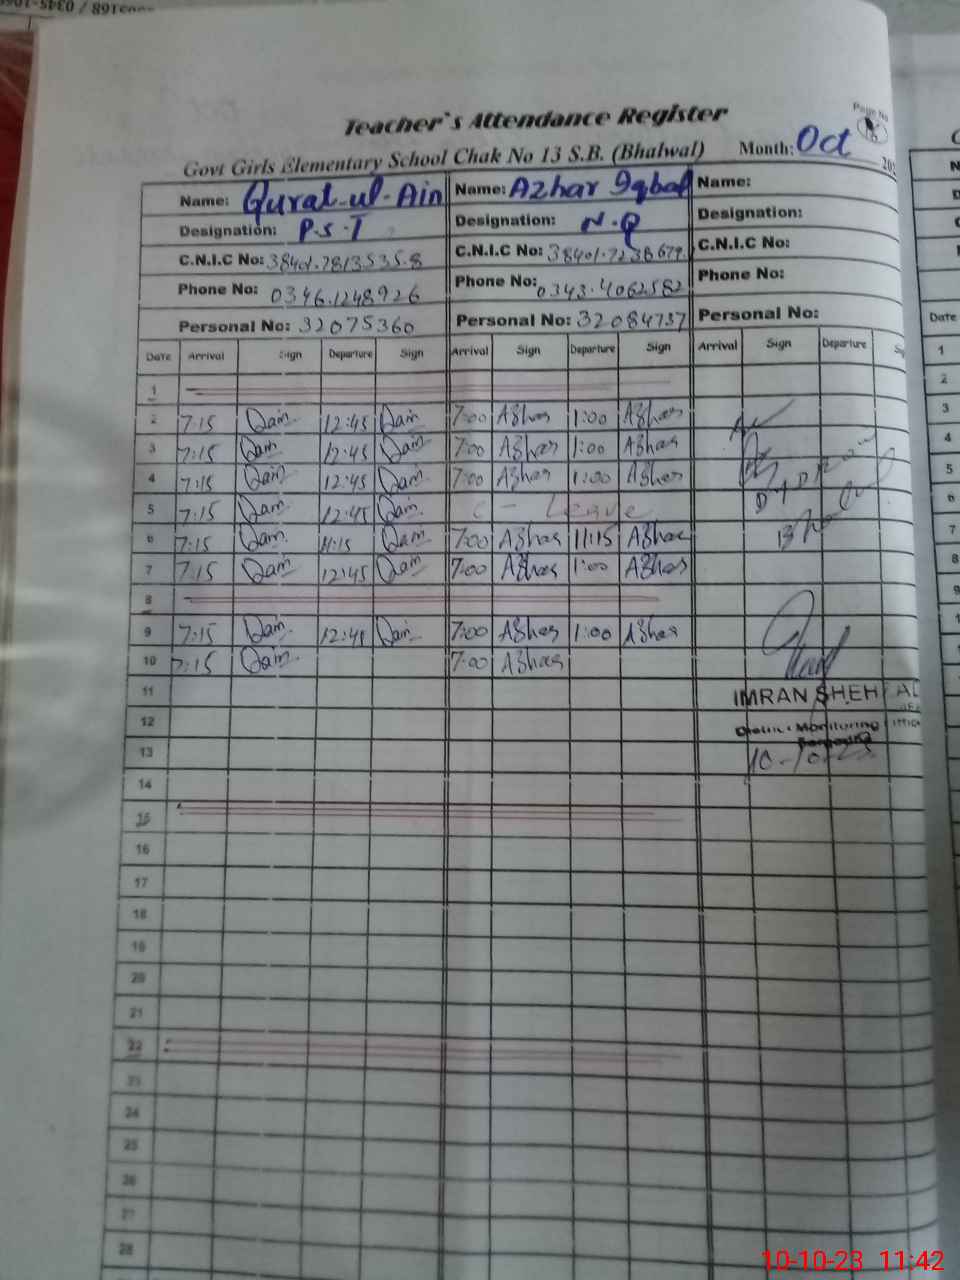 Teacher`s Attendance Register
Page No
Govt Girls Elementary School Chak No 13 S.B. (Bhalwal) Month: Oct 202
Name: Qurat-ul-Ain Name: Azhar Iqbal Name:
Designation: P.S.T Designation: N.Q Designation:
C.N.I.C No: 38401.7813535.8 C.N.I.C No: 38401.7238679. C.N.I.C No:
Phone No: 0346.1248926 Phone No: 0343.4062582 Phone No:
Personal No: 32075360 Personal No: 32084737 Personal No:
Date Arrival Sign Departure Sign Arrival Sign Departure Sign Arrival Sign Departure
1
2 7:15 Qain 12:45 Qain 7:00 Azhar 1:00 Azhar
3 7:15 Qain 12:45 Qain 7:00 Azhar 1:00 Azhar
4 7:15 Qain 12:45 Qain 7:00 Azhar 1:00 Azhar
5 7:15 Qain 12:45 Qain C - Leave
6 7:15 Qain 11:15 Qain 7:00 Azhar 11:15 Azhar
7 7:15 Qain 12:45 Qain 7:00 Azhar 1:00 Azhar
8
9 7:15 Qain 12:45 Qain 7:00 Azhar 1:00 Azhar
10 7:15 Qain 7:00 Azhar
11
IMRAN SHEH
12
Monitoring
13
10-10-23
14
15
16
17
18
19
20
21
22
23
24
25
26
27
28
Date
1
2
3
4
5
6
7
8
9
10-10-23 11:42